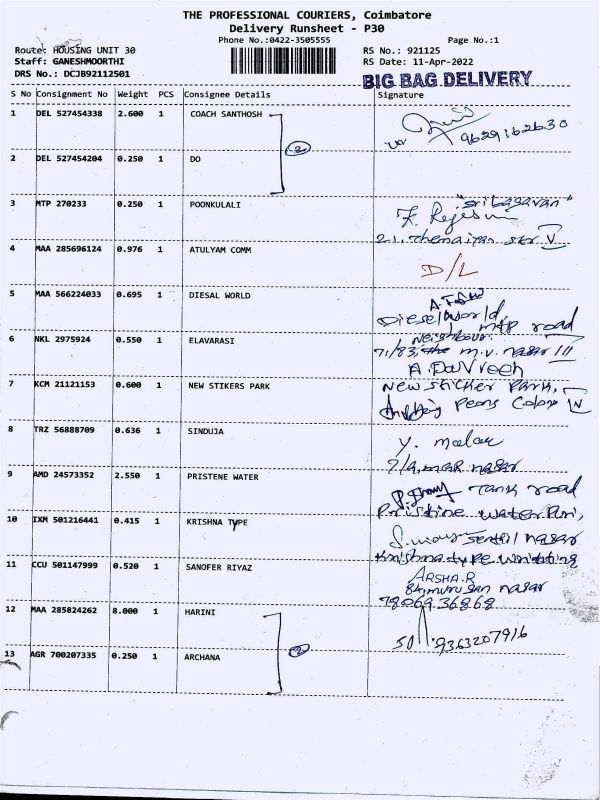 THE PROFESSIONAL COURIERS, Coimbatore
Delivery Runsheet - P30
Phone No.:0422-3505555
Page No.:1
Route: HOUSING UNIT 30
RS No.: 921125
Staff: GANESHMOORTHI
RS Date: 11-Apr-2022
DRS No.: DCJB92112501
BIG BAG DELIVERY
S No Consignment No Weight PCS Consignee Details Signature
1 DEL 527454338 2.600 1 COACH SANTHOSH
9629162630
2 DEL 527454204 0.250 1 DO
2
3 MTP 270233 0.250 1 POONKULALI
4 MAA 285696124 0.976 1 ATULYAM COMM
D/L
5 MAA 566224033 0.695 1 DIESAL WORLD
Diesel World,
mtp road
6 NKL 2975924 0.550 1 ELAVARASI
71/83, m.v. nagar
7 KCM 21121153 0.600 1 NEW STIKERS PARK
New sticker Park,
Peons Colony
8 TRZ 56888709 0.636 1 SINDUJA
9 AMD 24573352 2.550 1 PRISTENE WATER
Tank road
Pristine water
10 IXM 501216441 0.415 1 KRISHNA TYPE
Senthil nagar
Krishna type writting
11 CCU 501147999 0.520 1 SANOFER RIYAZ
ARSHA.R
murugan nagar
7806936868
12 MAA 285824262 8.000 1 HARINI
9363207916
13 AGR 700207335 0.250 1 ARCHANA
2